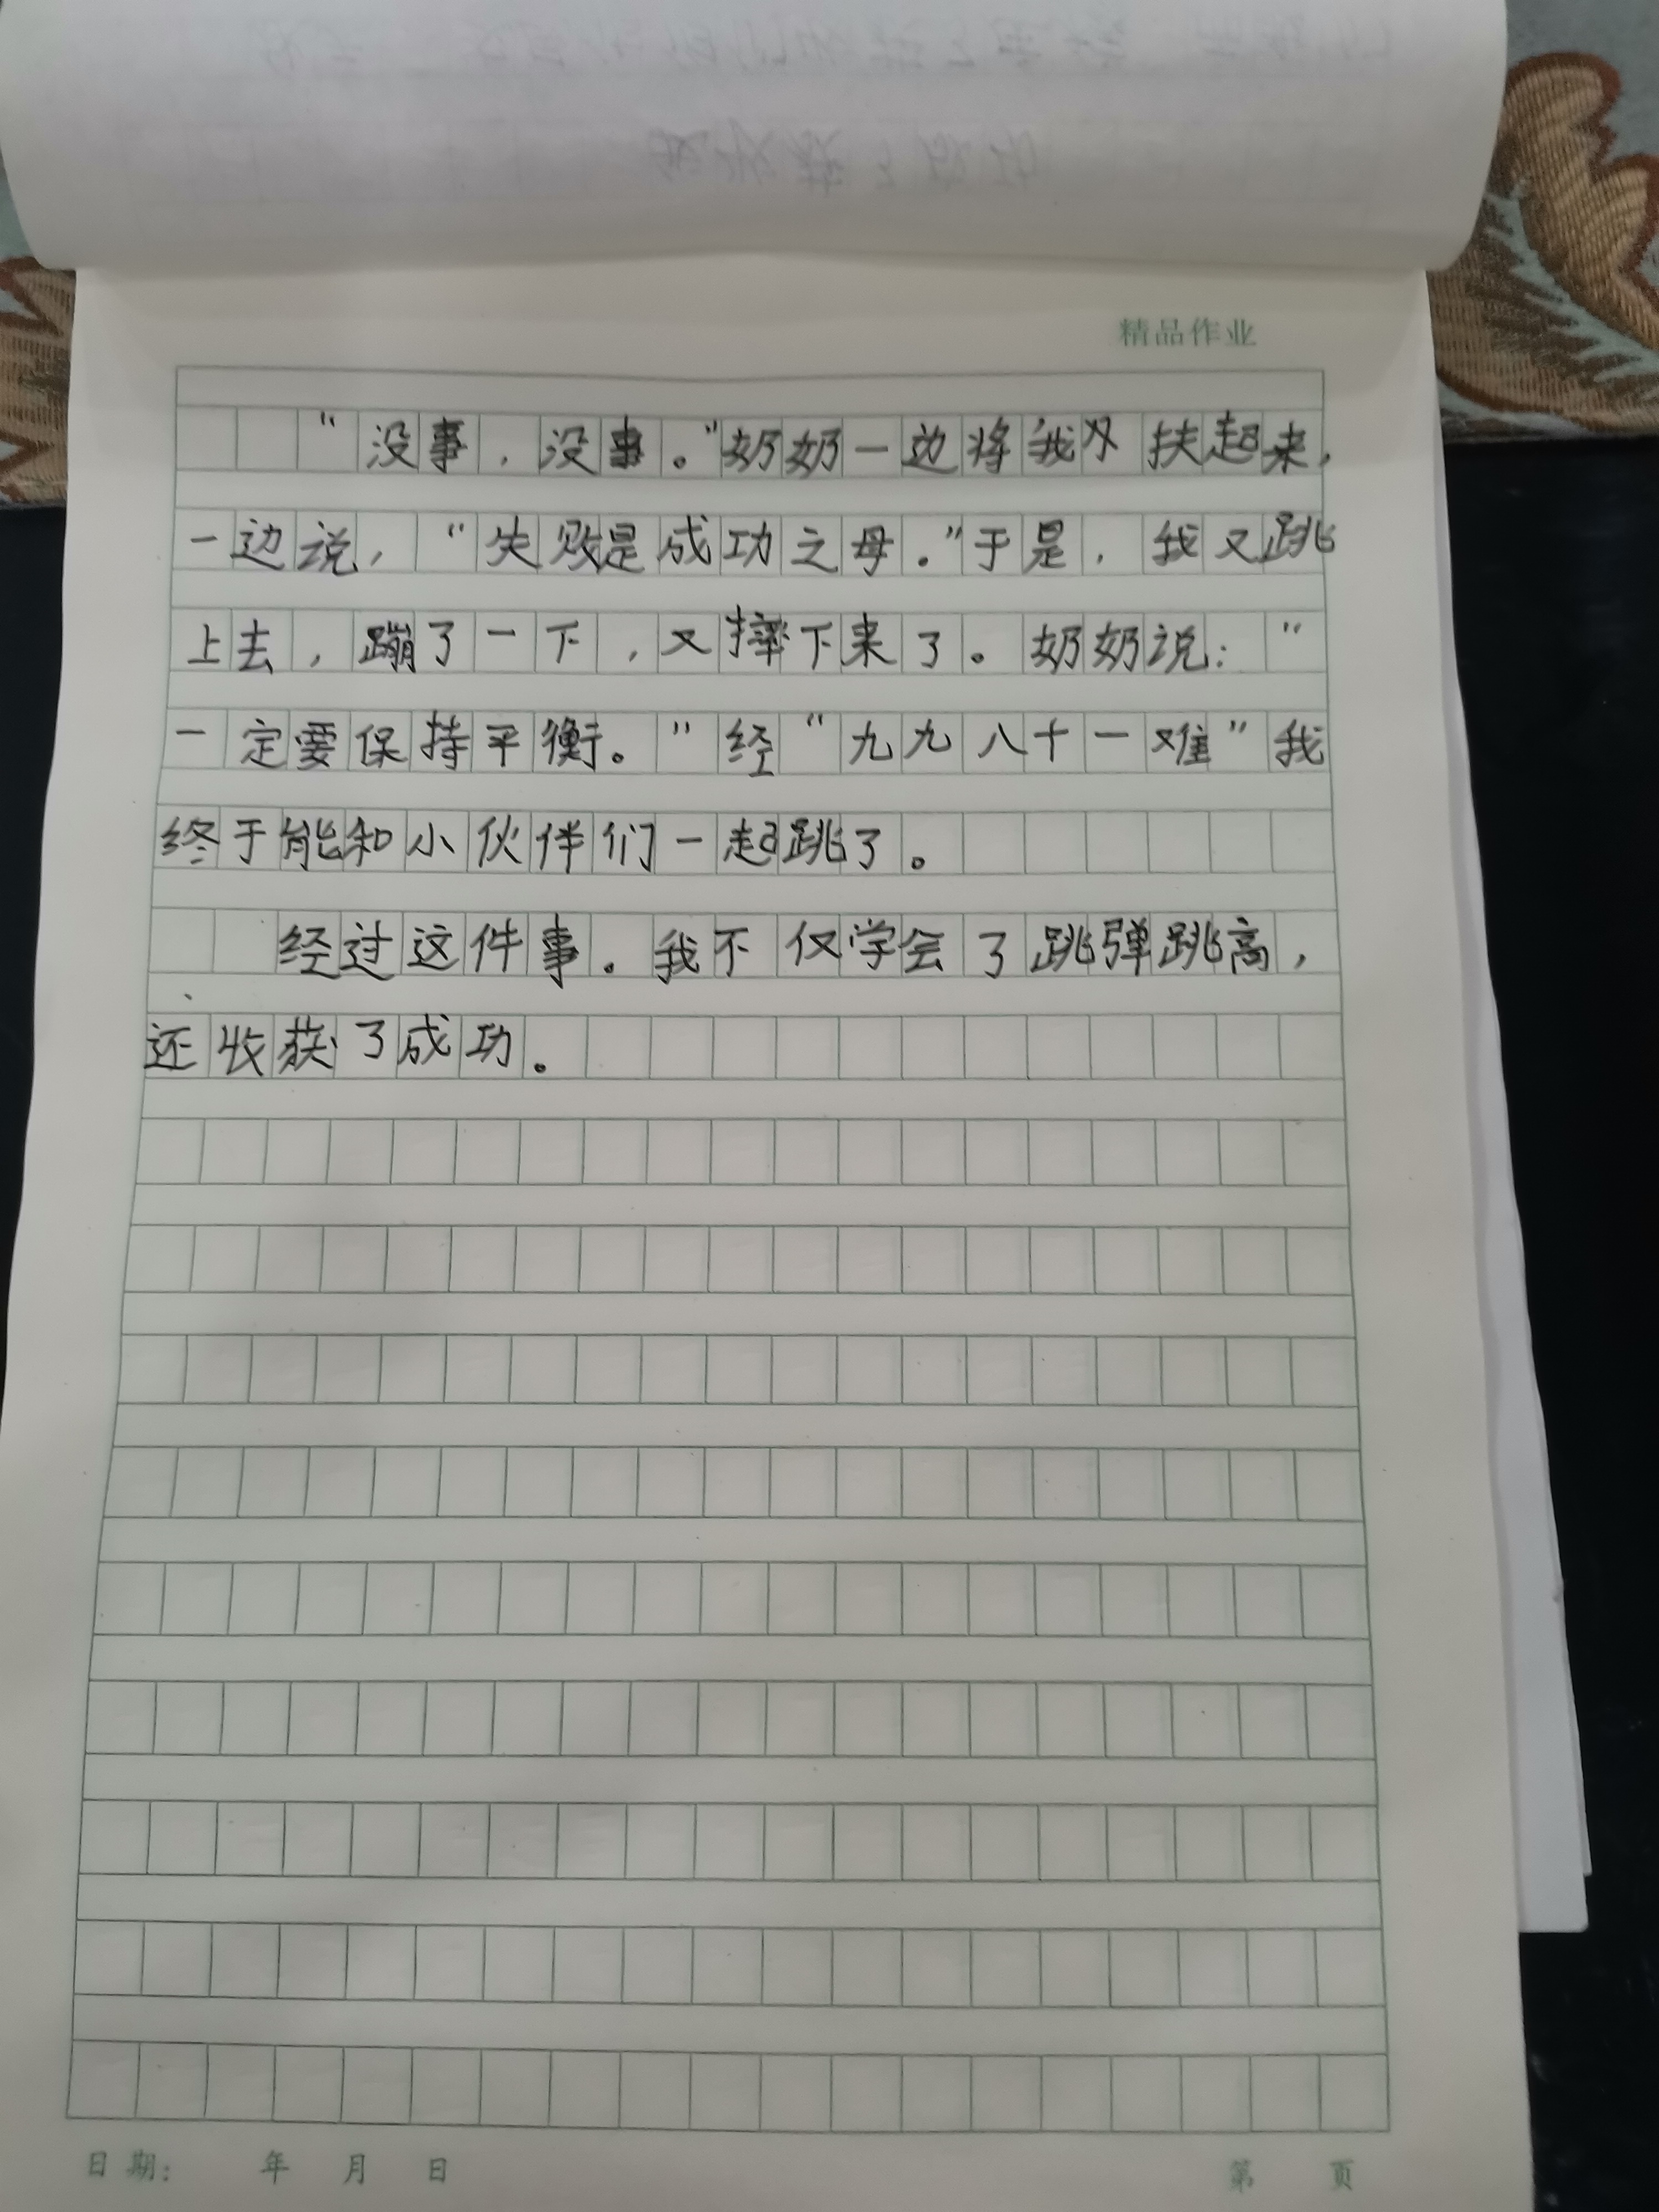 精品作业
“没事，没事。”奶奶一边将我扶起来，
一边说，“失败是成功之母。”于是，我又跳
上去，蹦了一下，又摔下来了。奶奶说：“
一定要保持平衡。”经“九九八十一难”我
终于能和小伙伴们一起跳了。
经过这件事。我不仅学会了跳弹跳高，
还收获了成功。
日期： 年 月 日
第 页